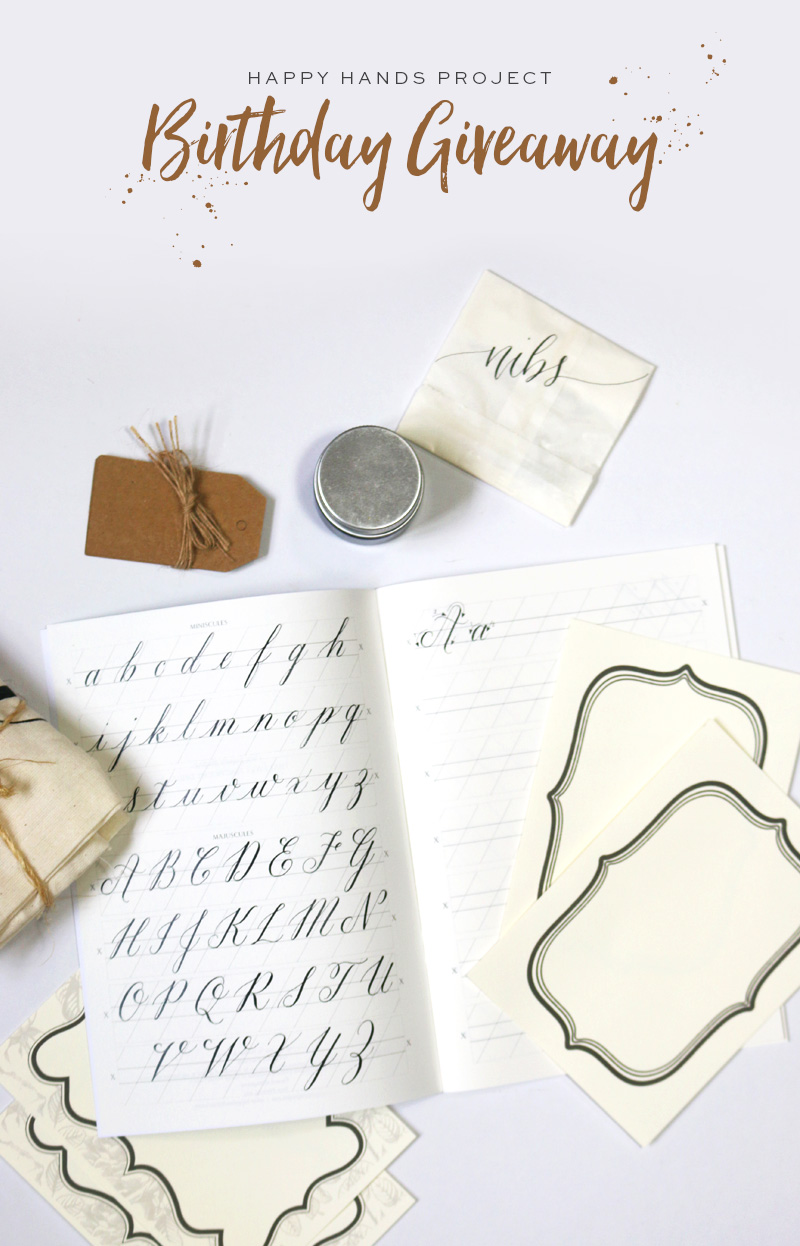 HAPPY HANDS PROJECT
Birthday Giveaway
nibs
MINISCULES
a b c d e f g h
i j k l m n o p q
s t u v w x y z
MAJUSCULES
A B C D E F G
H I J K L M N
O P Q R S T U
V W X Y Z
A a